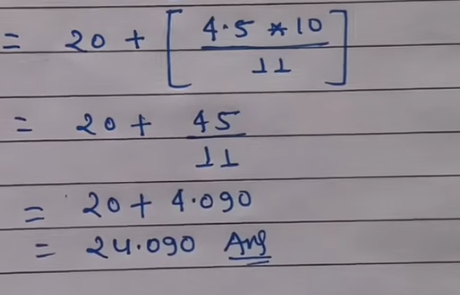 = 20 + [ 4.5 * 10 / 11 ]
= 20 + 45 / 11
= 20 + 4.090
= 24.090 Ans